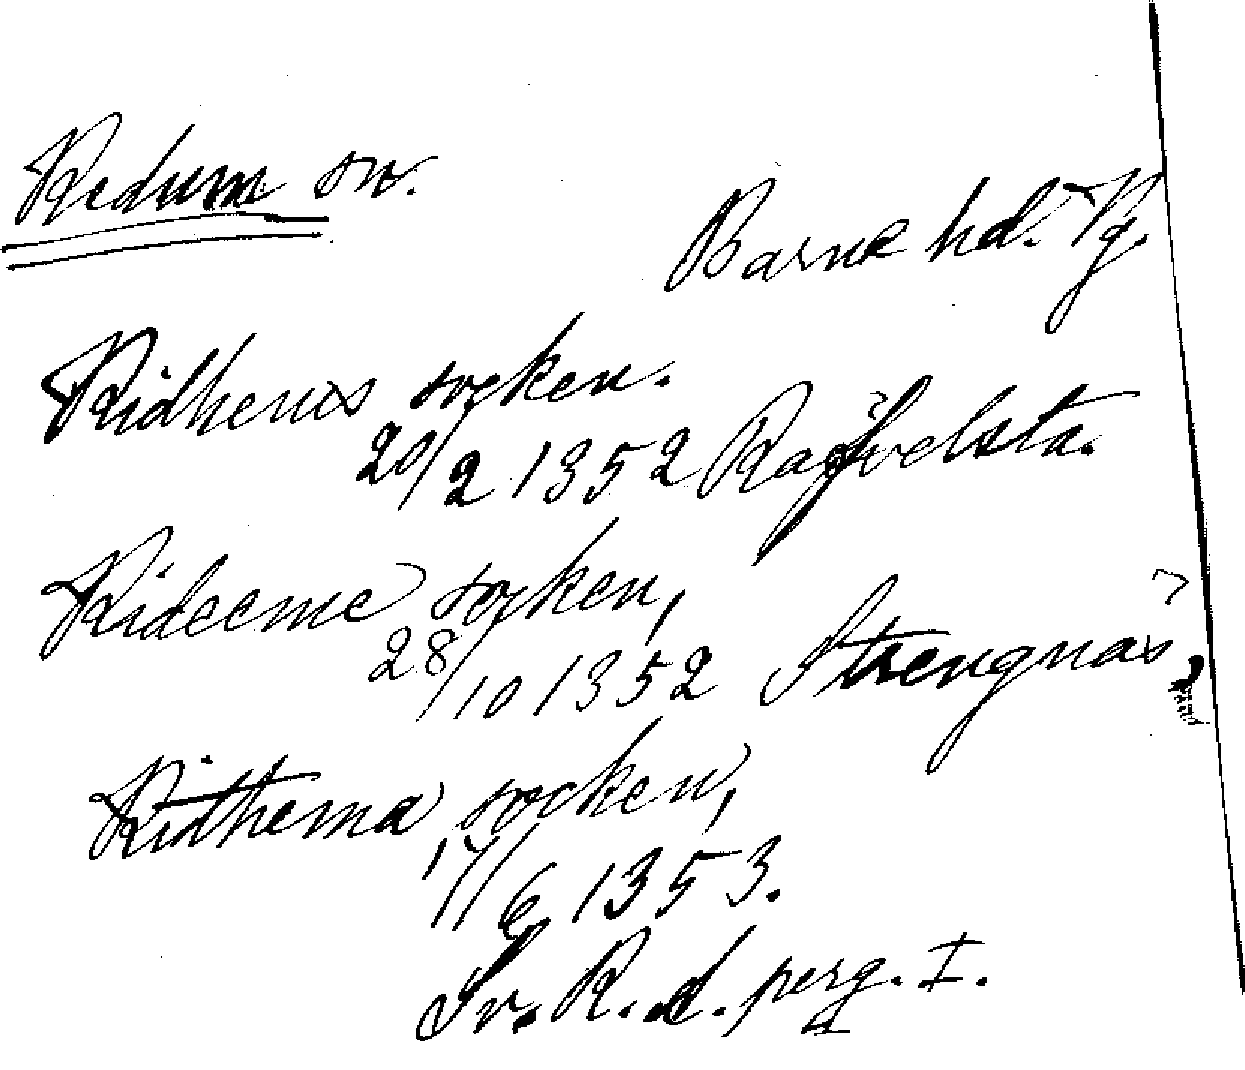 Redum sn.
Barne hd. Vg.
Ridhems socken.
20/2 1352 Ragvelsta.
Rideeme socken,
28/10 1352 Strengnäs,
Ridhema socken,
17/6 1353.
Sv. R. d. perg. I.